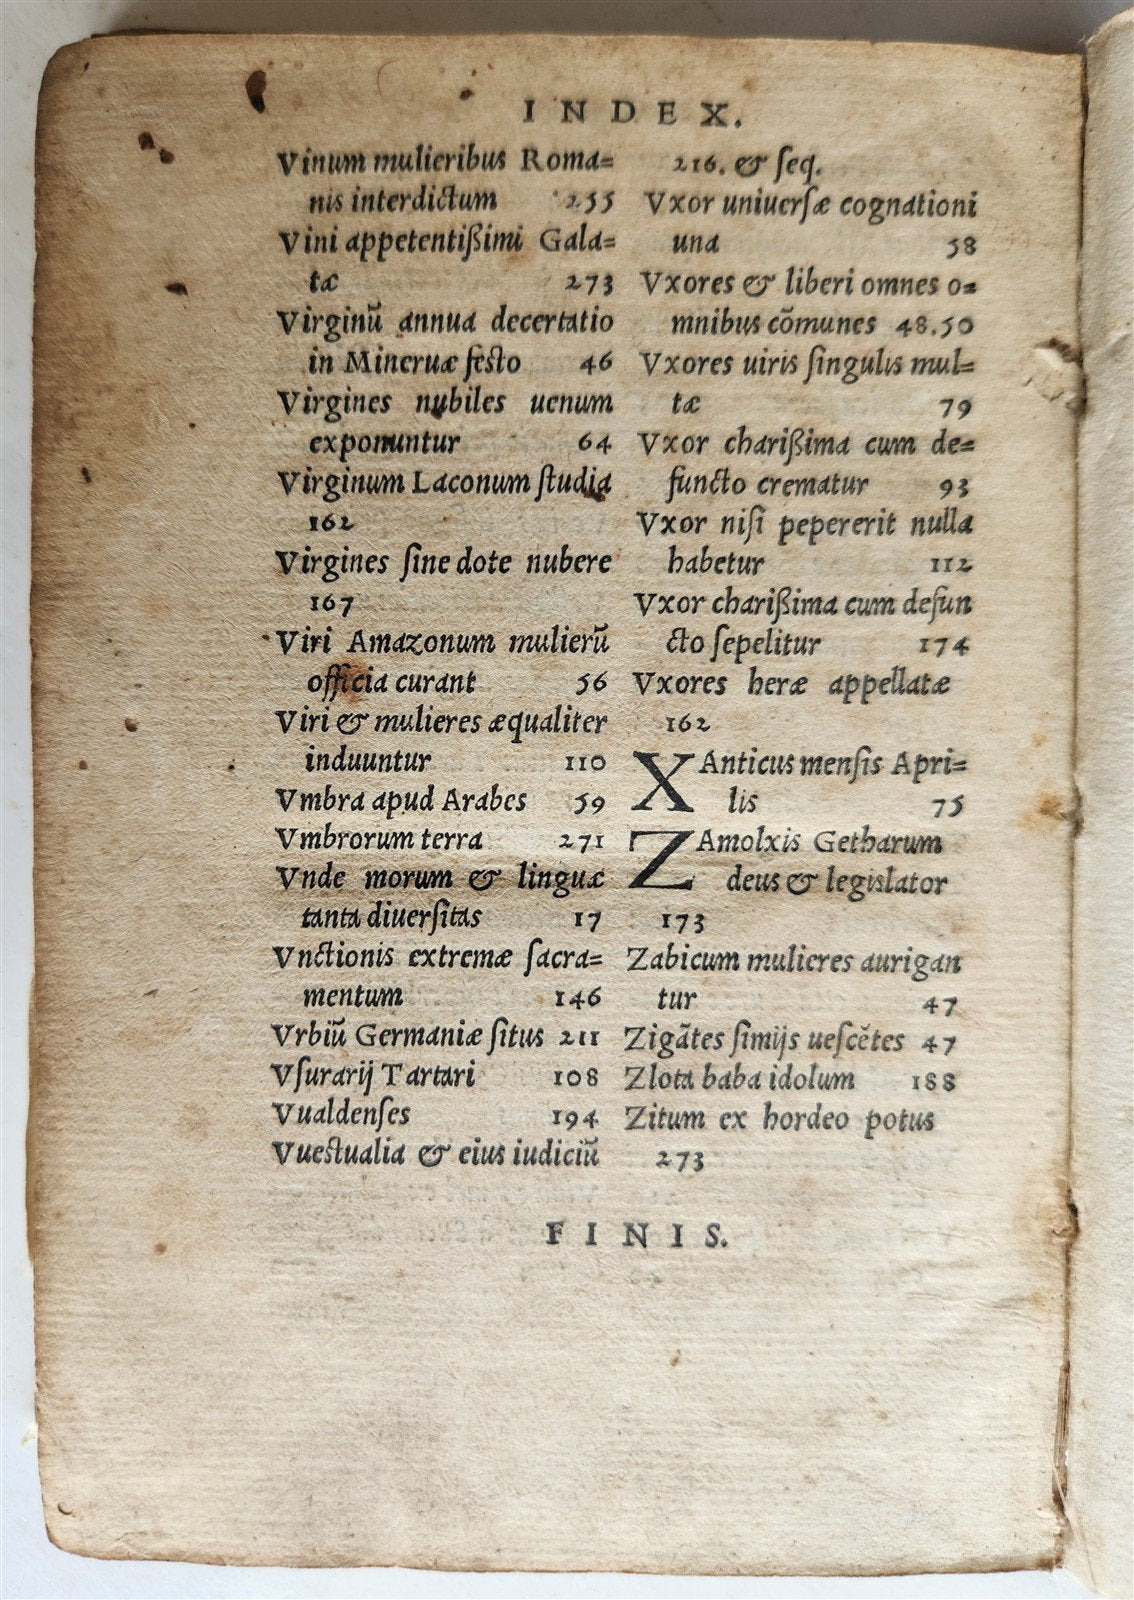 INDEX.
Vinum mulieribus Roma=
nis interdictum 255
Vini appetentißimi Gala=
tæ 273
Virginū annua decertatio
in Mineruæ festo 46
Virgines nubiles uenum
exponuntur 64
Virginum Laconum ſtudia
162
Virgines ſine dote nubere
167
Viri Amazonum mulierū
officia curant 56
Viri & mulieres æqualiter
induuntur 110
Vmbra apud Arabes 59
Vmbrorum terra 271
Vnde morum & linguæ
tanta diuerſitas 17
Vnctionis extremæ ſacra=
mentum 146
Vrbiū Germaniæ ſitus 211
Vſurarij Tartari 108
Vualdenſes 194
Vueſtualia & eius iudiciū
216. & ſeq.
Vxor uniuerſæ cognationi
una 58
Vxores & liberi omnes o=
mnibus cōmunes 48.50
Vxores uiris ſingulis mul=
tæ 79
Vxor charißima cum de=
functo crematur 93
Vxor niſi pepererit nulla
habetur 112
Vxor charißima cum defun
cto ſepelitur 174
Vxores heræ appellatæ
162
XAnticus menſis Apri=
lis 75
ZAmolxis Getharum
deus & legislator
173
Zabicum mulieres aurigan
tur 47
Zigātes ſimijs ueſcētes 47
Zlota baba idolum 188
Zitum ex hordeo potus
273
FINIS.